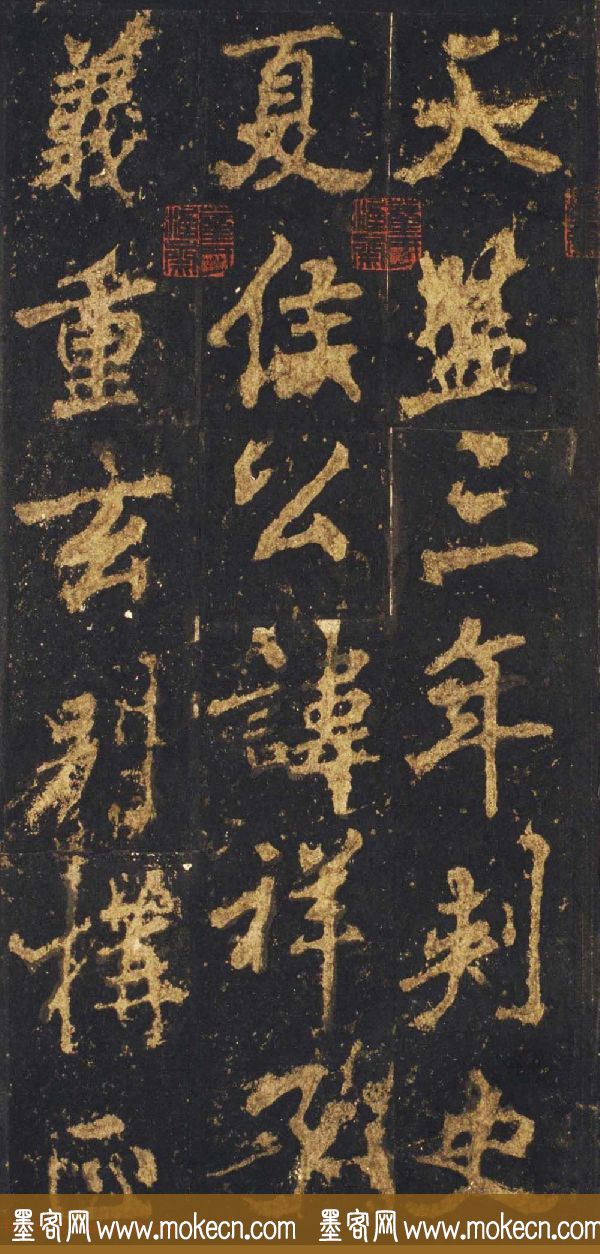 天監三年刺史
夏侯公諱祥
義重玄別構
墨客网 www.mokecn.com 墨客网 www.mokecn.com